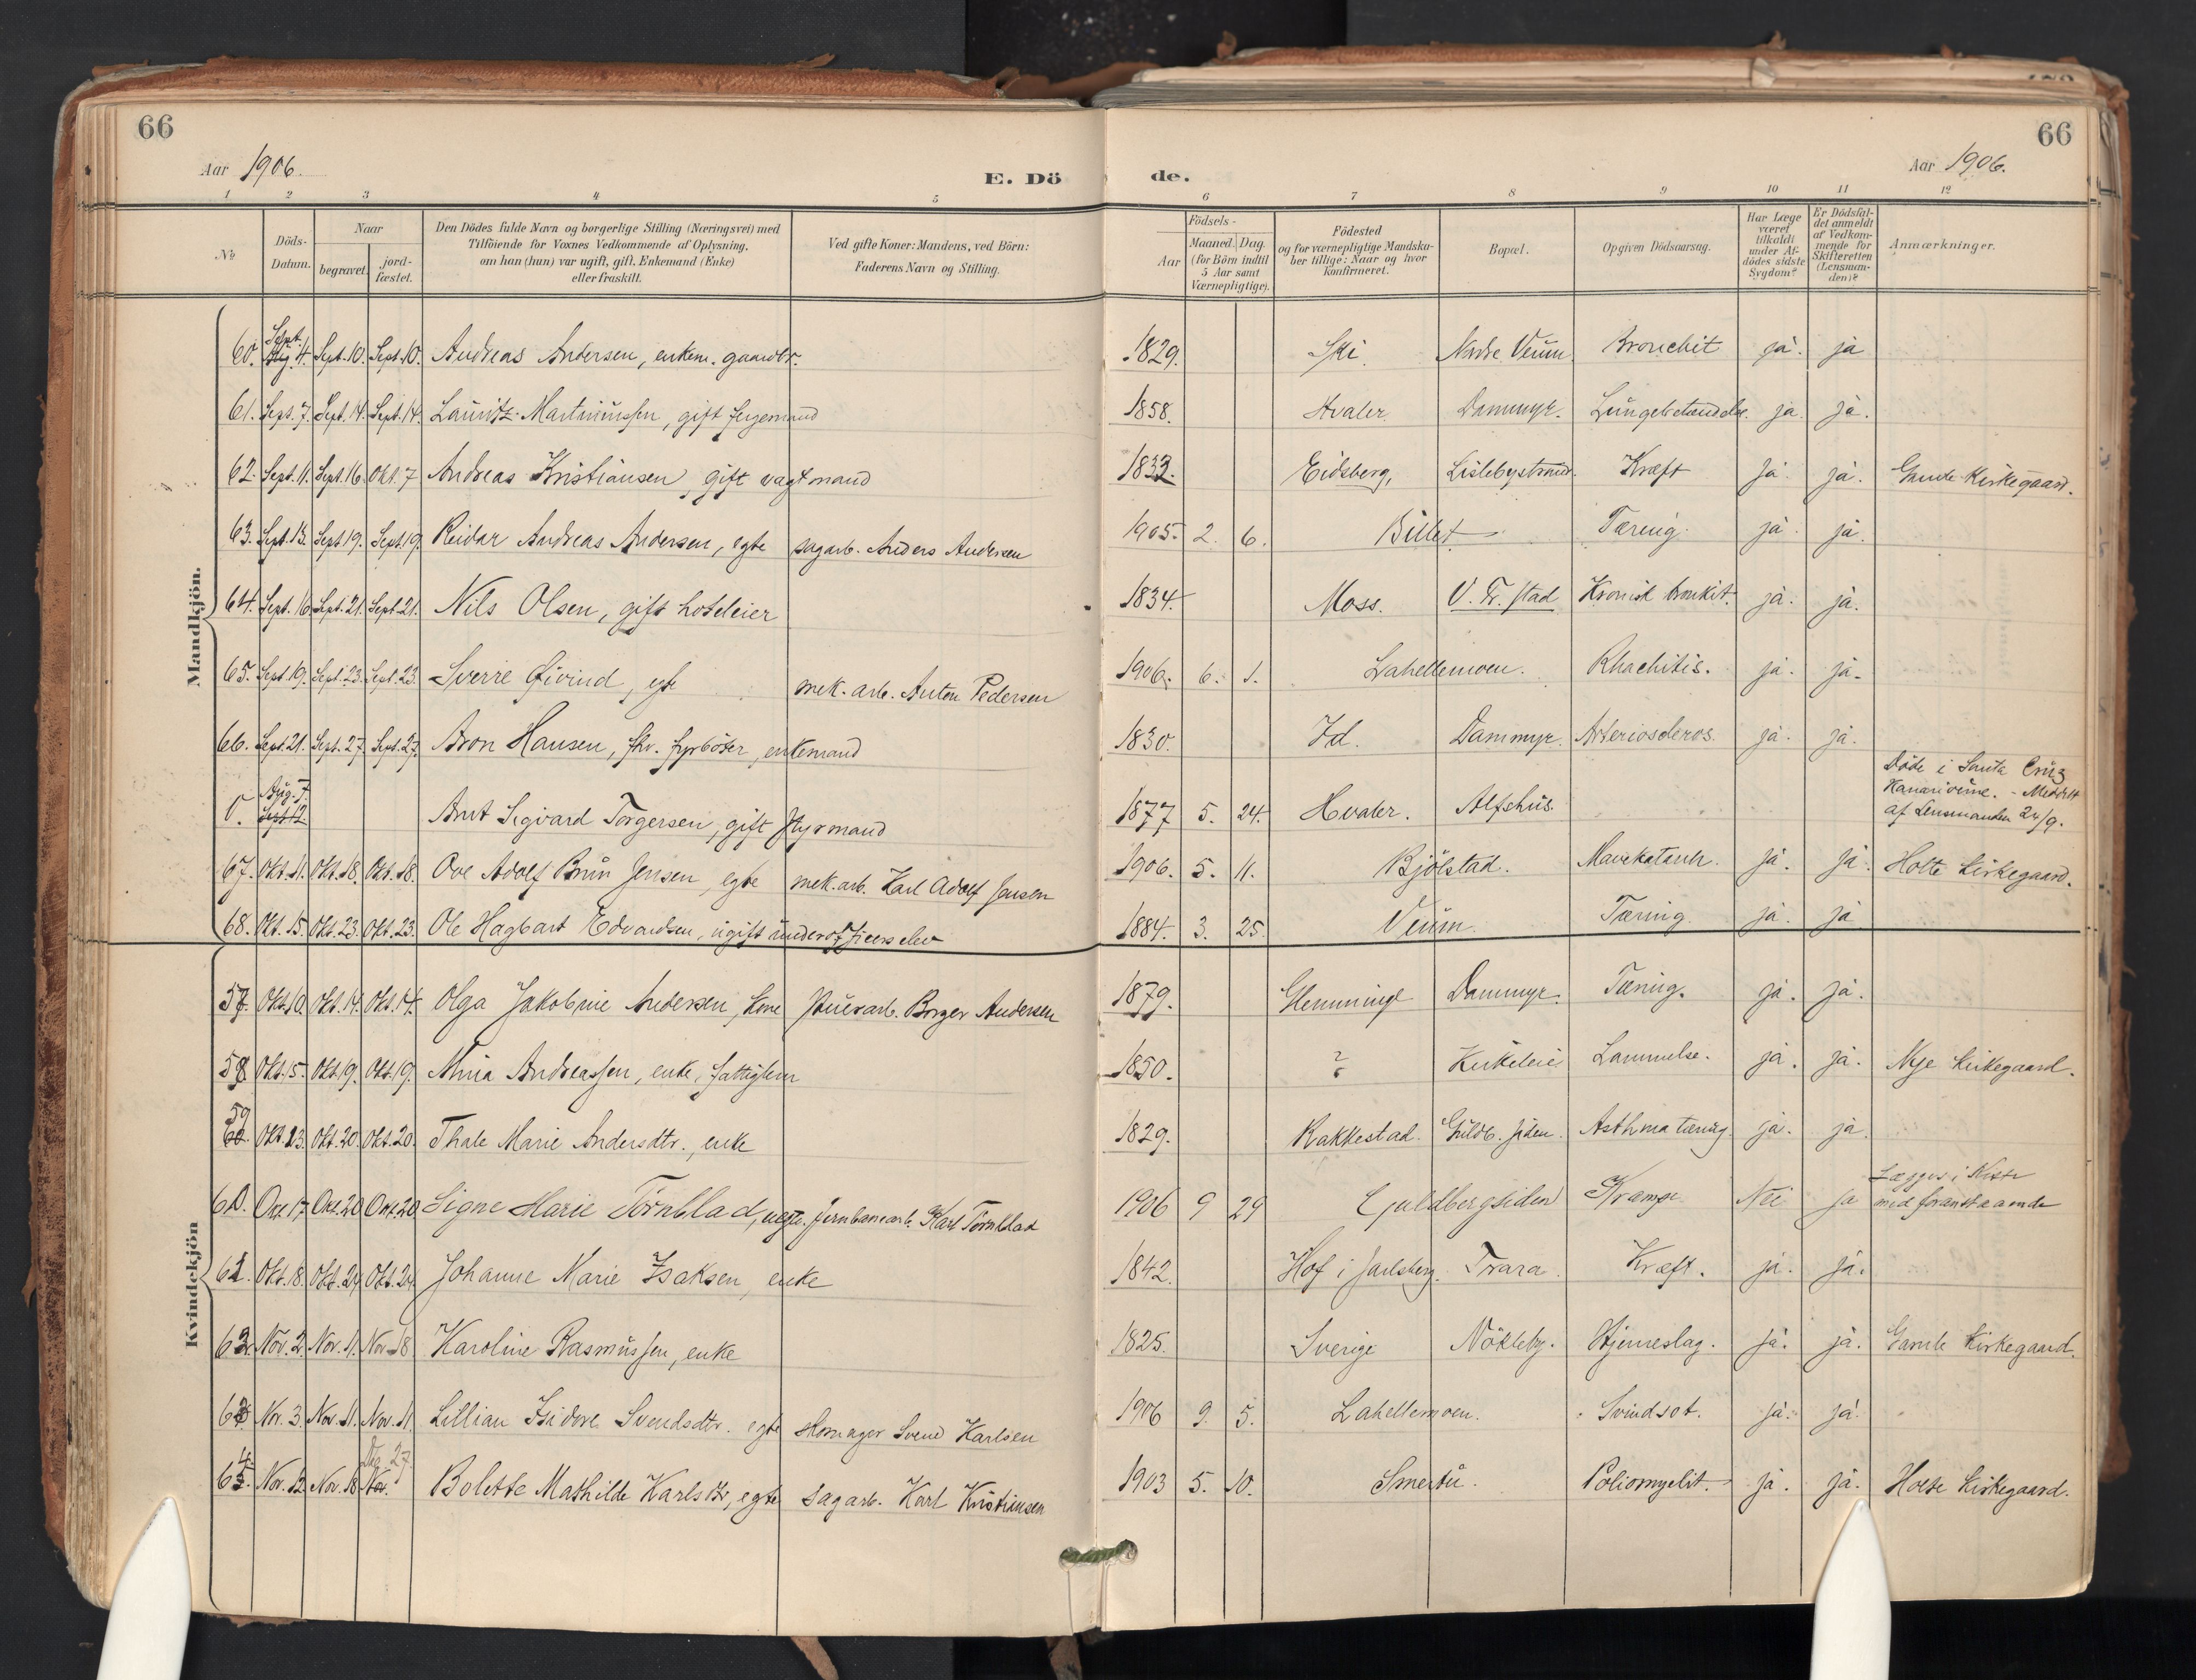 66
66
Aar 1906.
E. Dö
de.
Aar 1906.
1 2 3 4 5 6 7 8 9 10 11 12
№
Döds-Datum.
Naar
begravet.
jord-fæstet.
Den Dödes fulde Navn og borgerlige Stilling (Næringsvei) med
Tilföiende for Voxnes Vedkommende af Oplysning.
om han (hun) var ugift, gift. Enkemand (Enke)
eller fraskilt.
Ved gifte Koner: Mandens, ved Börn:
Faderens Navn og Stilling.
Födsels-
Aar
Maaned. Dag.
(for Börn indtil
5 Aar samt
Værnepligtige).
Födested
og for værnepligtige Mandska-
ber tillige: Naar og hvor
Konfirmeret.
Bopæl.
Opgiven Dödsaarsag.
Har Læge
været
tilkaldt
under Af-
dödes sidste
Sygdom?
Er Dödsfal-
det anmeldt
af Vedkom-
mende for
Skifteretten
(Lensman-
den)?
Anmærkninger.
Mandkjön.
60. Sept. 4. Sept. 10. Sept. 10. Andreas Andersen, enkem. gaardbr. 1829. Ski. Nedre Veum Bronchit ja. ja
61. Sept. 7. Sept. 14. Sept. 14. Lauritz Martiniussen, gift fergemand 1858. Hvaler Dammyr. Lungebetændelse. ja. ja.
62. Sept. 11. Sept. 16. Okt. 7 Andreas Kristiansen, gift vagtmand 1833. Eidsberg, Lislebystrand. Kræft ja. ja. Gamle Kirkegaard.
63. Sept. 13. Sept. 19. Sept. 19. Reidar Andreas Andersen, egte sagarb. Anders Andersen 1905. 2. 6. Billet Tæring ja. ja.
64. Sept. 16. Sept. 21. Sept. 21. Nils Olsen, gift hoteleier 1834. Moss. V. Fr. stad Kronisk bronkit. ja. ja.
65. Sept. 19. Sept. 23. Sept. 23. Sverre Øivind, egte mek. arb. Anton Pedersen 1906. 6. 1. Lahellemoen. Rhachitis. ja. ja.
66. Sept. 21. Sept. 27. Sept. 27. Aron Hansen, fhv. fyrböter, enkemand 1830. Id. Dammyr. Arterioscleros. ja. ja.
0. Aug. 5. Sept 12. Arnt Sigvard Torgersen, gift styrmand 1877 5. 24. Hvaler. Alfshus.
Döde i Santa Cruz
Kanariöerne. - Meddelt
af Lensmanden 24/9.
67. Okt. 11. Okt. 18. Okt. 18. Ove Adolf Brün Jensen, egte mek. arb. Karl Adolf Jensen 1906. 5. 11. Bjölstad. Mavekatarrh. ja. ja. Holte kirkegaard.
68. Okt. 15. Okt. 23. Okt. 23. Ole Hagbart Edvardsen, ugift underofficerselev 1884. 3. 25. Veum. Tæring. ja. ja
Kvindekjön
57. Okt. 10. Okt. 14. Okt. 14. Olga Jakobine Andersen, kone stuerarb. Borger Andersen 1879. Glemminge Dammyr. Tæring. ja. ja.
58 Okt. 15. Okt. 19. Okt. 19. Mina Andreassen, enke, fattiglem 1850. ? Kirkeleie Lammelse. ja. ja. Nye kirkegaard.
59 Okt. 13. Okt. 20. Okt. 20. Thale Marie Andersdtr., enke 1829. Rakkestad. Guldb. siden. Asthma tæring. ja. ja.
60. Okt. 17 Okt. 20 Okt. 20 Signe Marie Törnblad, uegte. Jernbanearb. Karl Törnblad 1906 9 29 Guldbergsiden Krampe Nei ja
Lægges i Kiste
med foranstaaende
61. Okt. 18. Okt. 24. Okt. 24. Johanne Marie Isaksen, enke 1842. Hof i Jarlsberg. Trara Kræft. ja. ja.
62. Nov. 2. Nov. 11. Nov. 18 Karoline Rasmussen, enke 1825. Sverige Nökleby. Hjerneslag. ja. ja. Gamle Kirkegaard.
63 Nov. 3. Nov. 11. Nov. 11. Lillian Isidore Svendsdtr. egte skomager Svend Karlsen 1906 9. 5. Lahellemoen. Svindsot. ja. ja.
Dec 27.
64 Nov. 12. Nov. 18 Nov. Bolette Mathilde Karlsdtr, egte sagarb. Karl Kristiansen 1903 5. 10. Smertu. Poliomyelit. ja. ja. Holte kirkegaard.